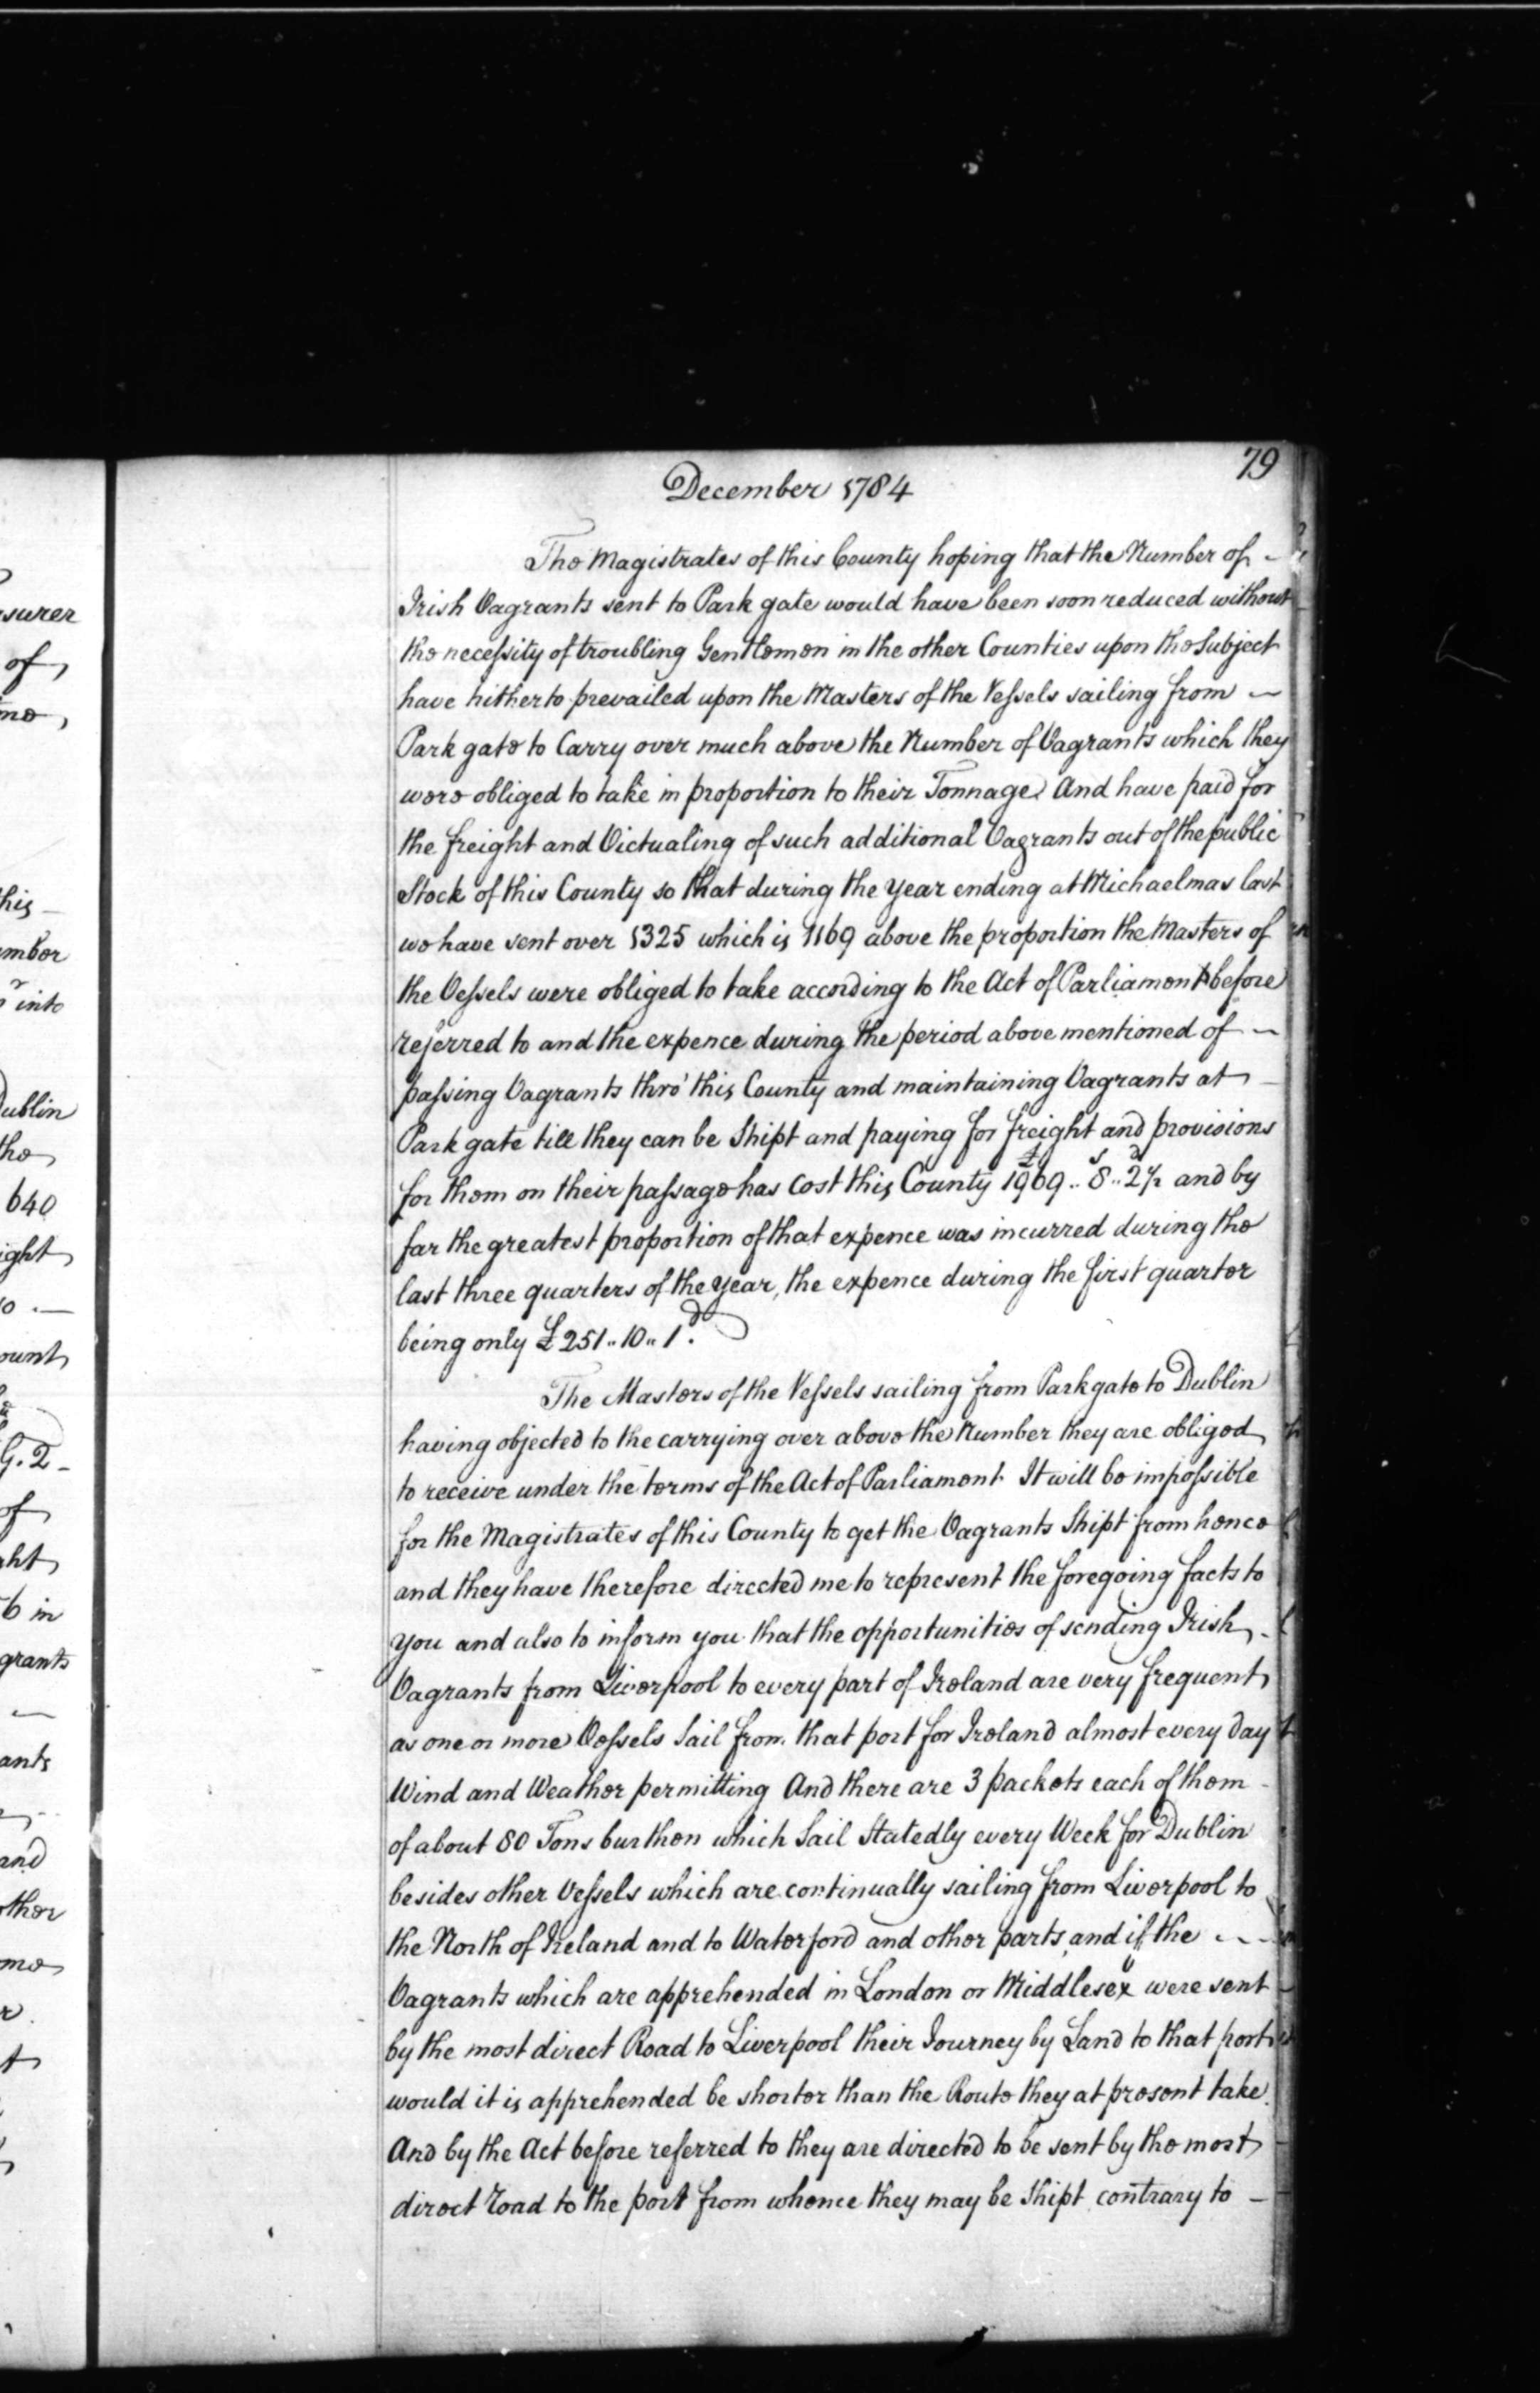 79
December 1784
The Magistrates of this County hoping that the Number of -
Irish Vagrants sent to Park gate would have been soon reduced without
the necessity of troubling Gentlemen in the other Counties upon the Subject
have hitherto prevailed upon the Masters of the Vessels sailing from -
Park gate to Carry over much above the Number of Vagrants which they
were obliged to take in proportion to their Tonnage And have paid for
the freight and Victualing of such additional Vagrants out of the public
Stock of this County so that during the Year ending at Michaelmas last
we have sent over 1325 which is 1169 above the proportion the Masters of
the Vessels were obliged to take according to the Act of Parliament before
referred to and the expence during the period above mentioned of -
passing Vagrants thro' this County and maintaining Vagrants at -
Park gate till they can be Shipt and paying for freight and provisions
for them on their passage has Cost this County £1969.. 8s.. 2½d and by
far the greatest proportion of that expence was incurred during the
last three quarters of the Year, the expence during the first quarter
being only £251..10..1d.
The Masters of the Vessels sailing from Parkgate to Dublin
having objected to the carrying over above the Number they are obliged
to receive under the terms of the Act of Parliament It will be impossible
for the Magistrates of this County to get the Vagrants Shipt from hence
and they have therefore directed me to represent the foregoing facts to
you and also to inform you that the opportunities of sending Irish -
Vagrants from Liverpool to every part of Ireland are very frequent
as one or more Vessels Sail from that port for Ireland almost every day
Wind and Weather permitting And there are 3 packets each of them -
of about 80 Tons burthen which Sail Statedly every Week for Dublin
besides other Vessels which are continually sailing from Liverpool to
the North of Ireland and to Waterford and other parts, and if the -
Vagrants which are apprehended in London or Middlesex were sent
by the most direct Road to Liverpool their Journey by Land to that port
would it is apprehended be shorter than the Route they at present take.
And by the Act before referred to they are directed to be sent by the most
direct road to the port from whence they may be Shipt contrary to -
surer
of
mber
into
Dublin
640
ight
ount
G. 2 -
of
6 in
grants
ants
and
ther